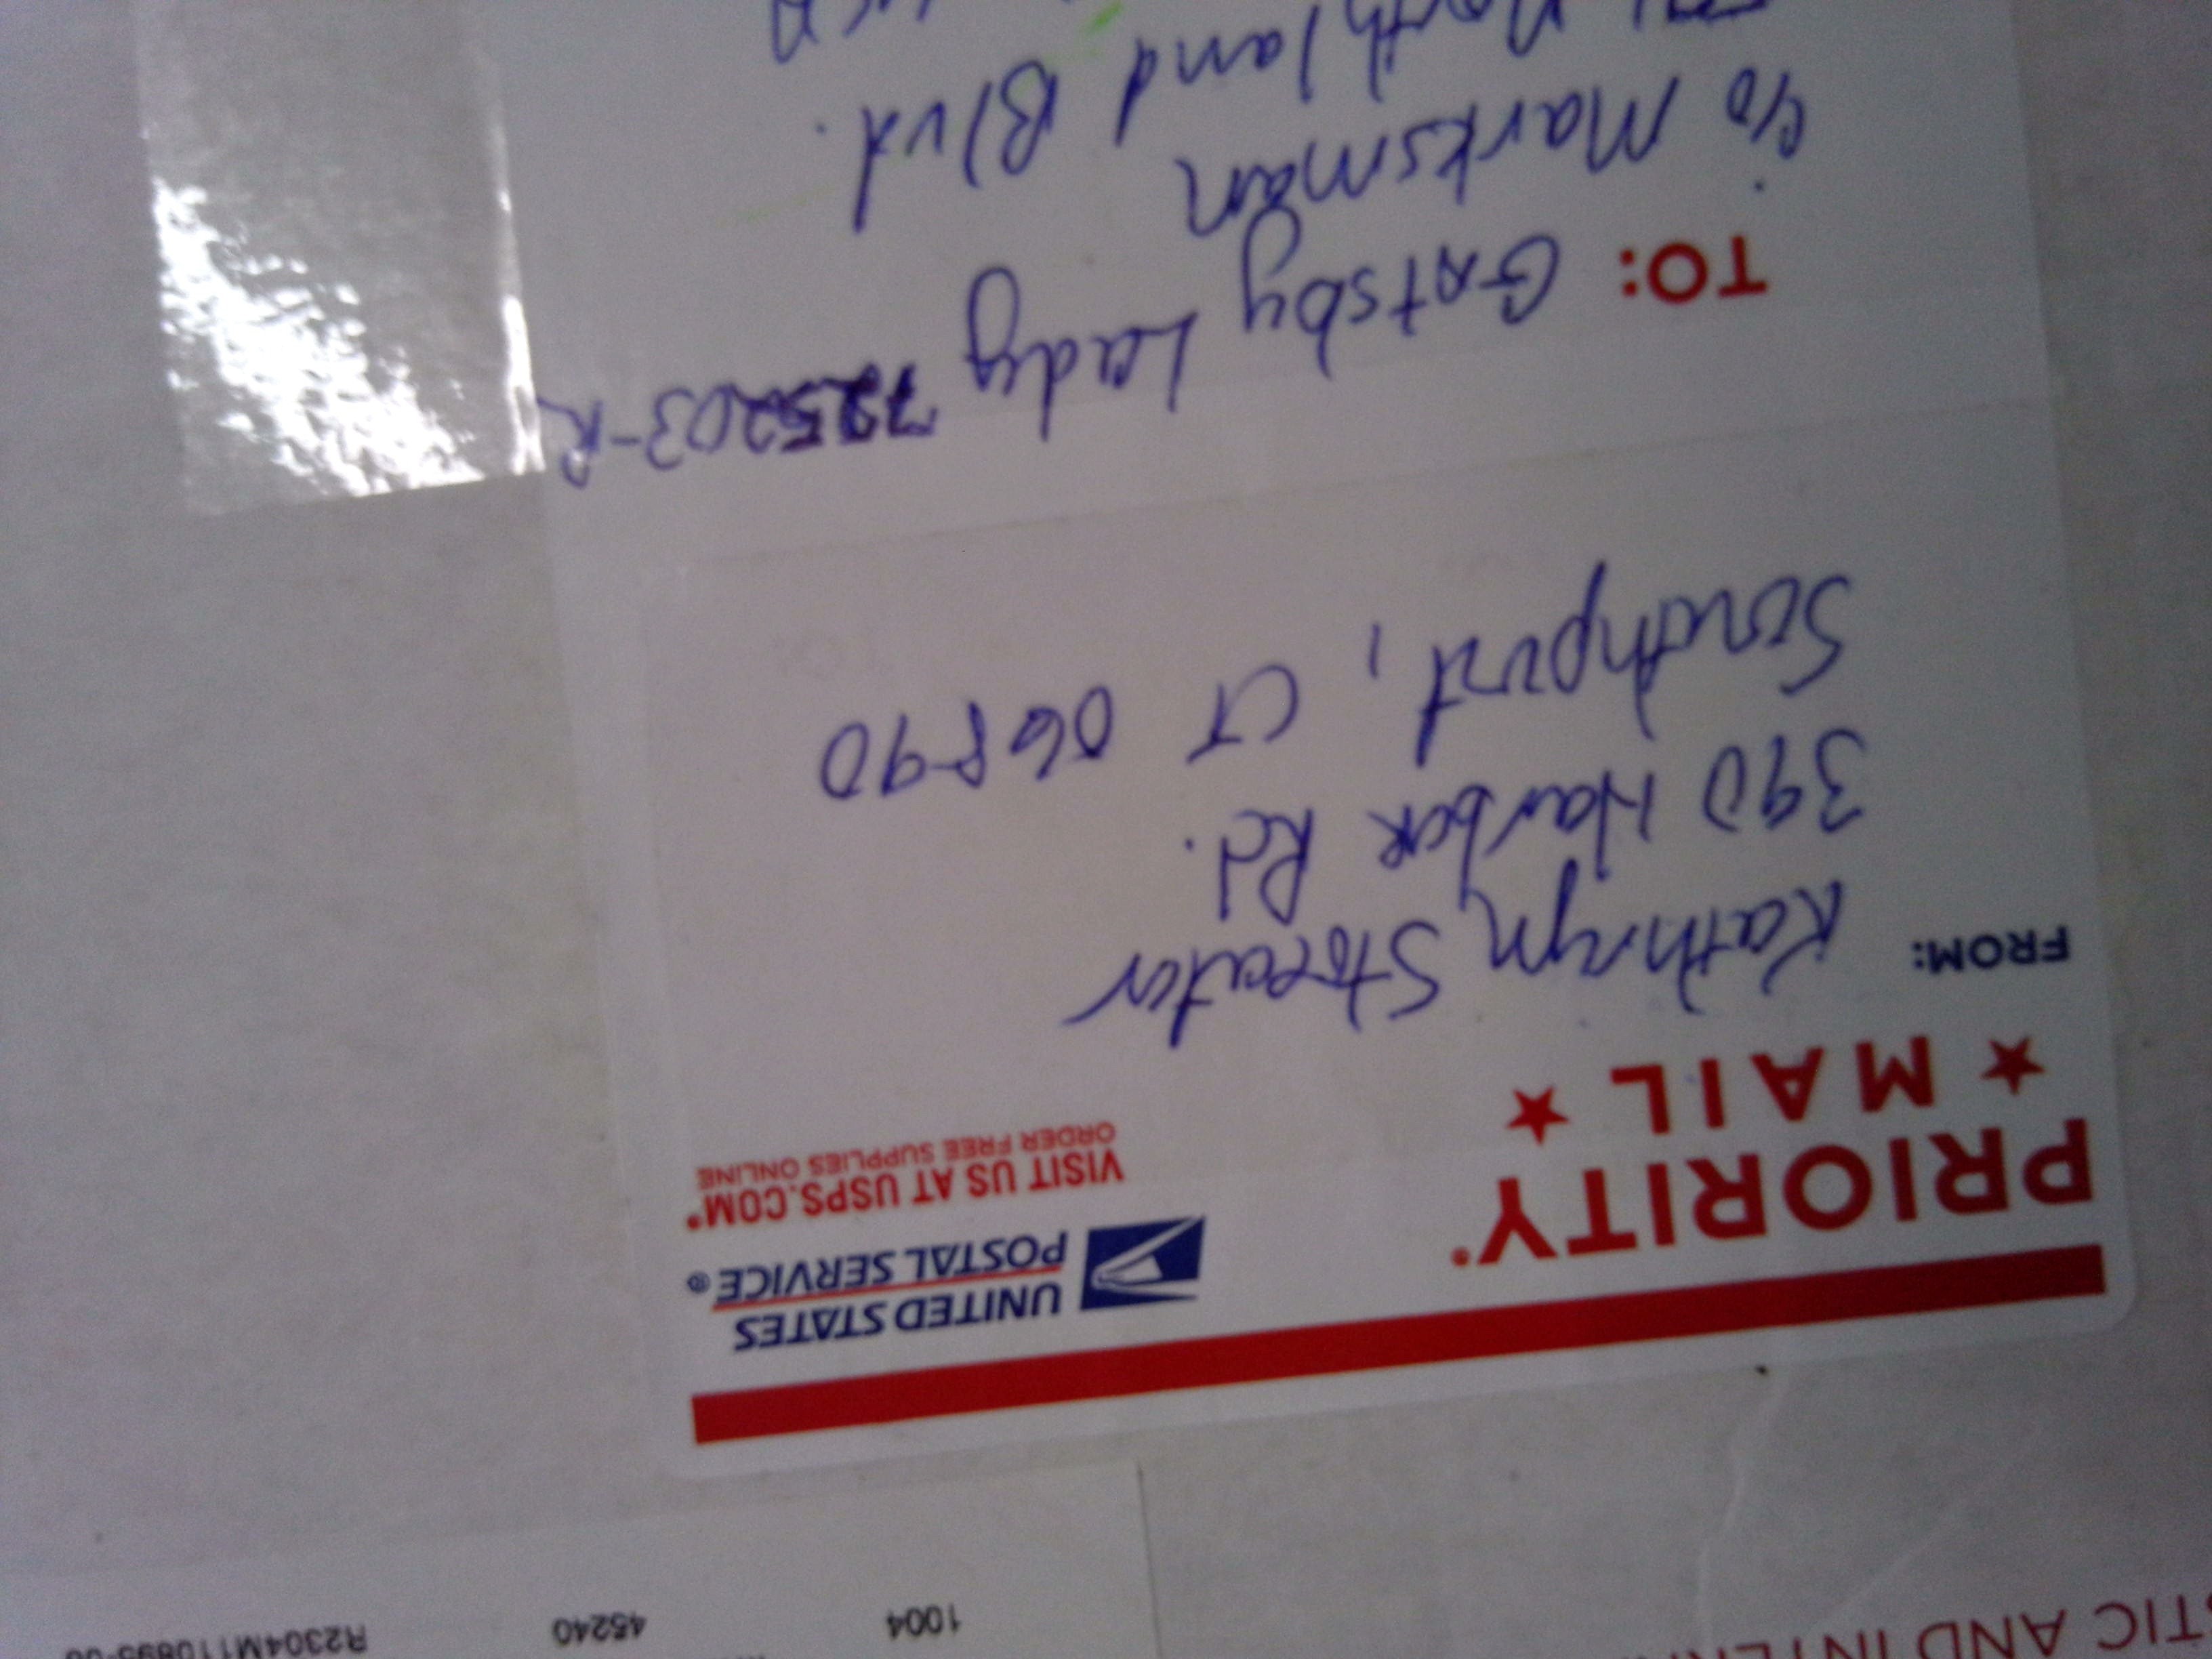 1004 45240 R2304M110895-06
STIC AND INTERN
UNITED STATES
POSTAL SERVICE®
VISIT US AT USPS.COM®
ORDER FREE SUPPLIES ONLINE
PRIORITY®
★ MAIL ★
FROM:
Kathryn Streator
390 Harbor Rd.
Southport, CT 06890
TO: Gatsby Lady 725203-R
c/o Marksman
Northland Blvd.